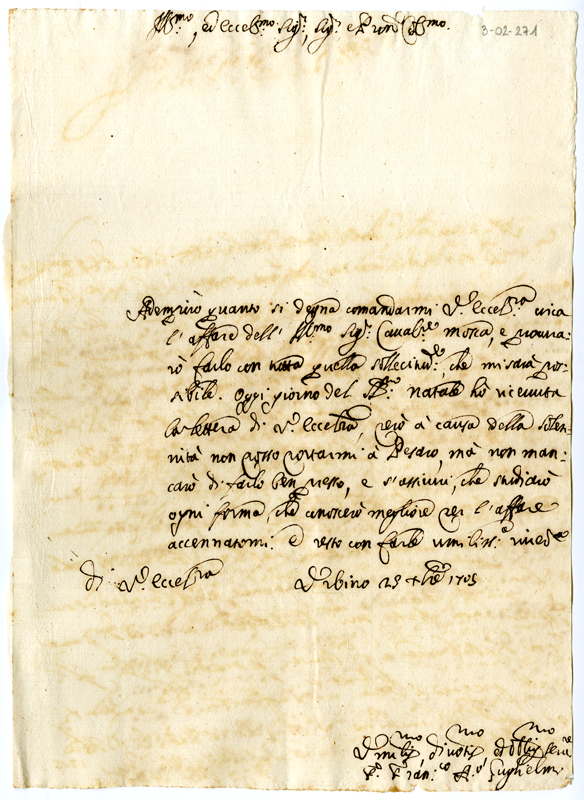 Ill.mo, ed Eccel.mo Sig.r, Sig.r e P.ron Col.mo.
3-02-271
Adempirò quanto si degna comandarmi V.ra Eccel.za circa
l'affare dell' Ill.mo Sig.r Caval.re Mosca, e procura-
rò farlo con tutta quella sollecitud.e, che mi sarà pos-
sibile. Oggi giorno del SS.mo Natale hò ricevuta
la lettera di V.ra Eccel.za, però à causa della solen-
nità non posso portarmi à Pesaro, mà non man-
carò di farlo ben presto, e s'assicuri, che studiarò
ogni forma, che conoscerò megliore per l'affare
accennatomi. E resto con farle umiliss.e river.e
di V.ra Eccel.za Urbino 25 Xbre 1705
Umilis.mo, divotis.mo ed obblig.mo serv.e
F. Fran.co A. Guglielmi